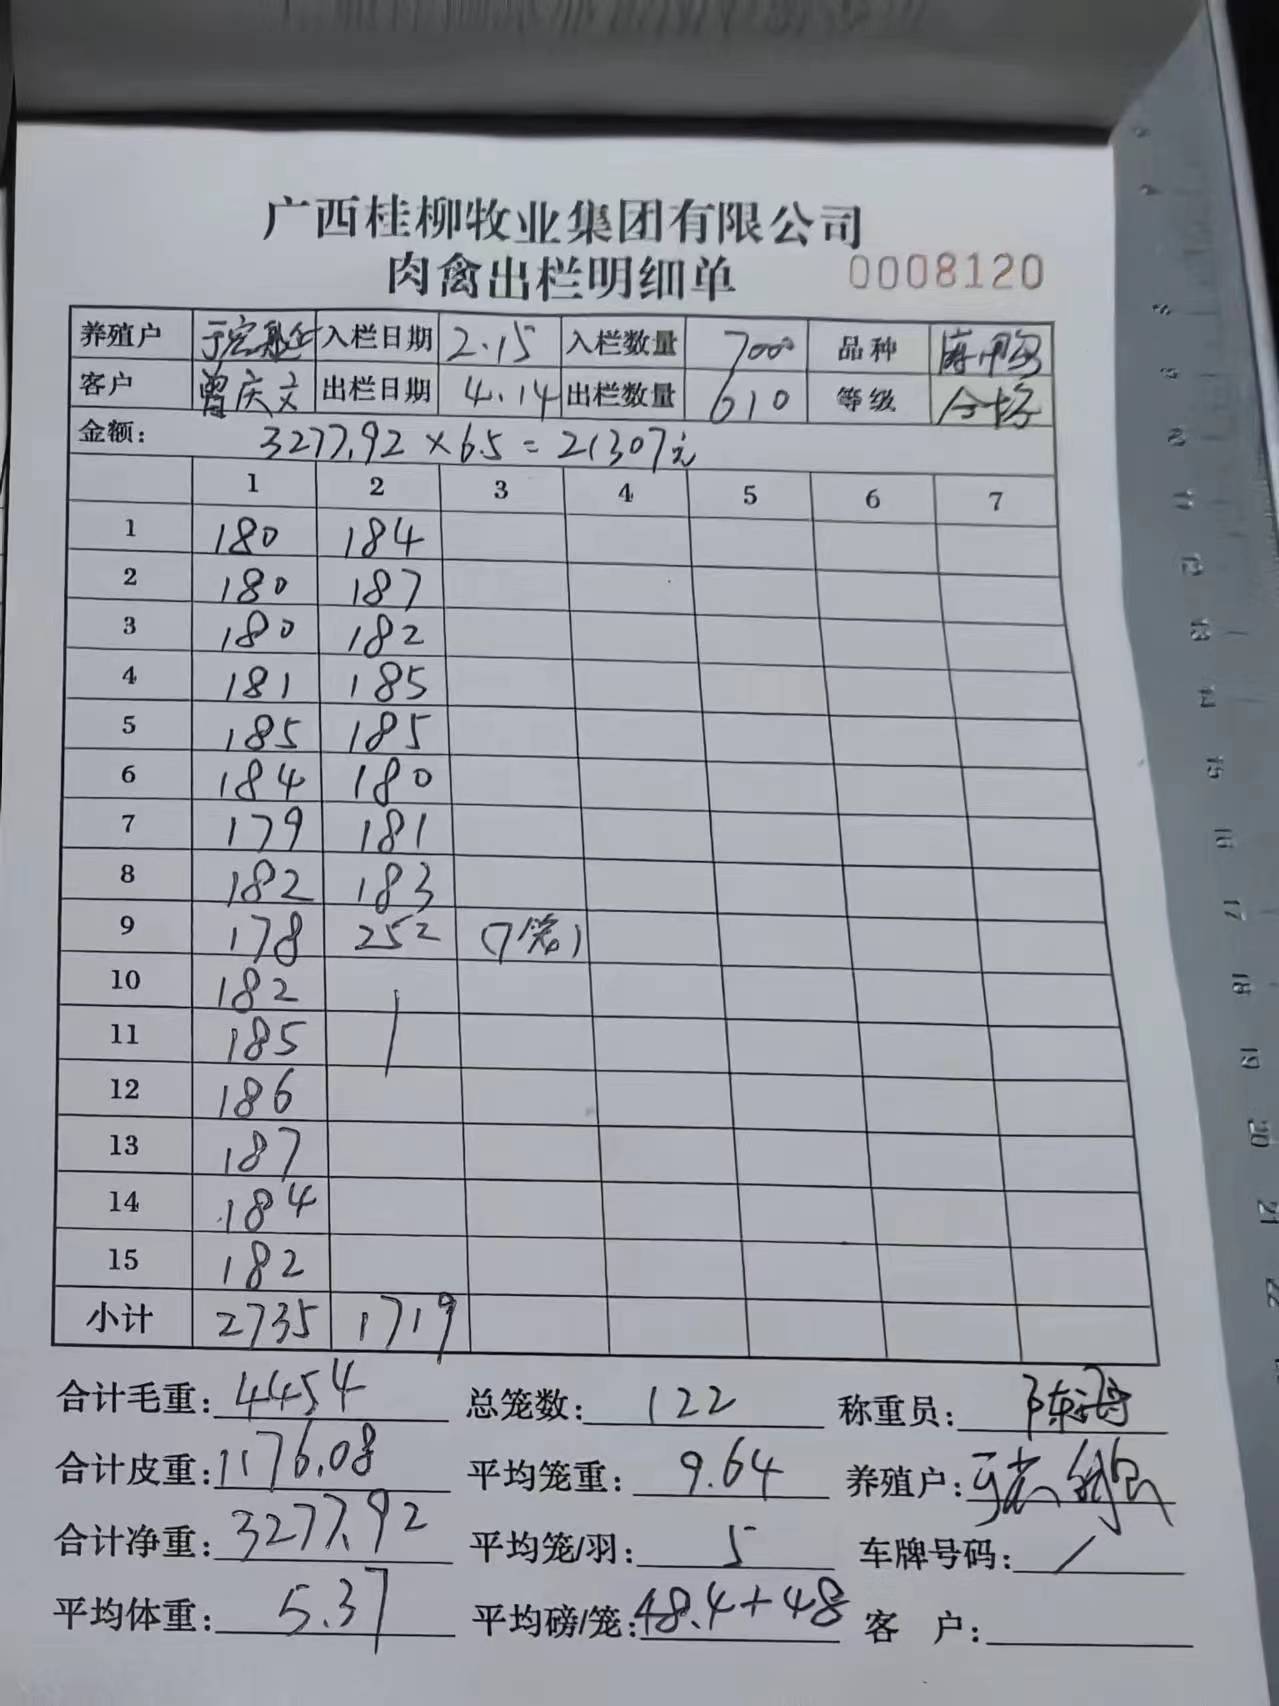 广西桂柳牧业集团有限公司
肉禽出栏明细单 0008120
养殖户 入栏日期 2.15 入栏数量 7000 品种 麻鸭
客户 曾庆文 出栏日期 4.14 出栏数量 610 等级 合格
金额: 3277.92×6.5=21307元
1 2 3 4 5 6 7
1 180 184
2 180 187
3 180 182
4 181 185
5 185 185
6 184 180
7 179 181
8 182 183
9 178 252 (7笼)
10 182
11 185
12 186
13 187
14 184
15 182
小计 2735 1719
合计毛重: 4454 总笼数: 122 称重员:
合计皮重: 1176.08 平均笼重: 9.64 养殖户:
合计净重: 3277.92 平均笼/羽: 5 车牌号码: /
平均体重: 5.37 平均磅/笼: 48.4+48 客 户: